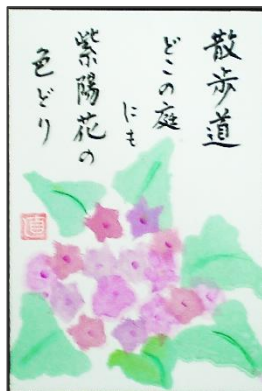 散歩道
どこの庭
にも
紫陽花の
色どり